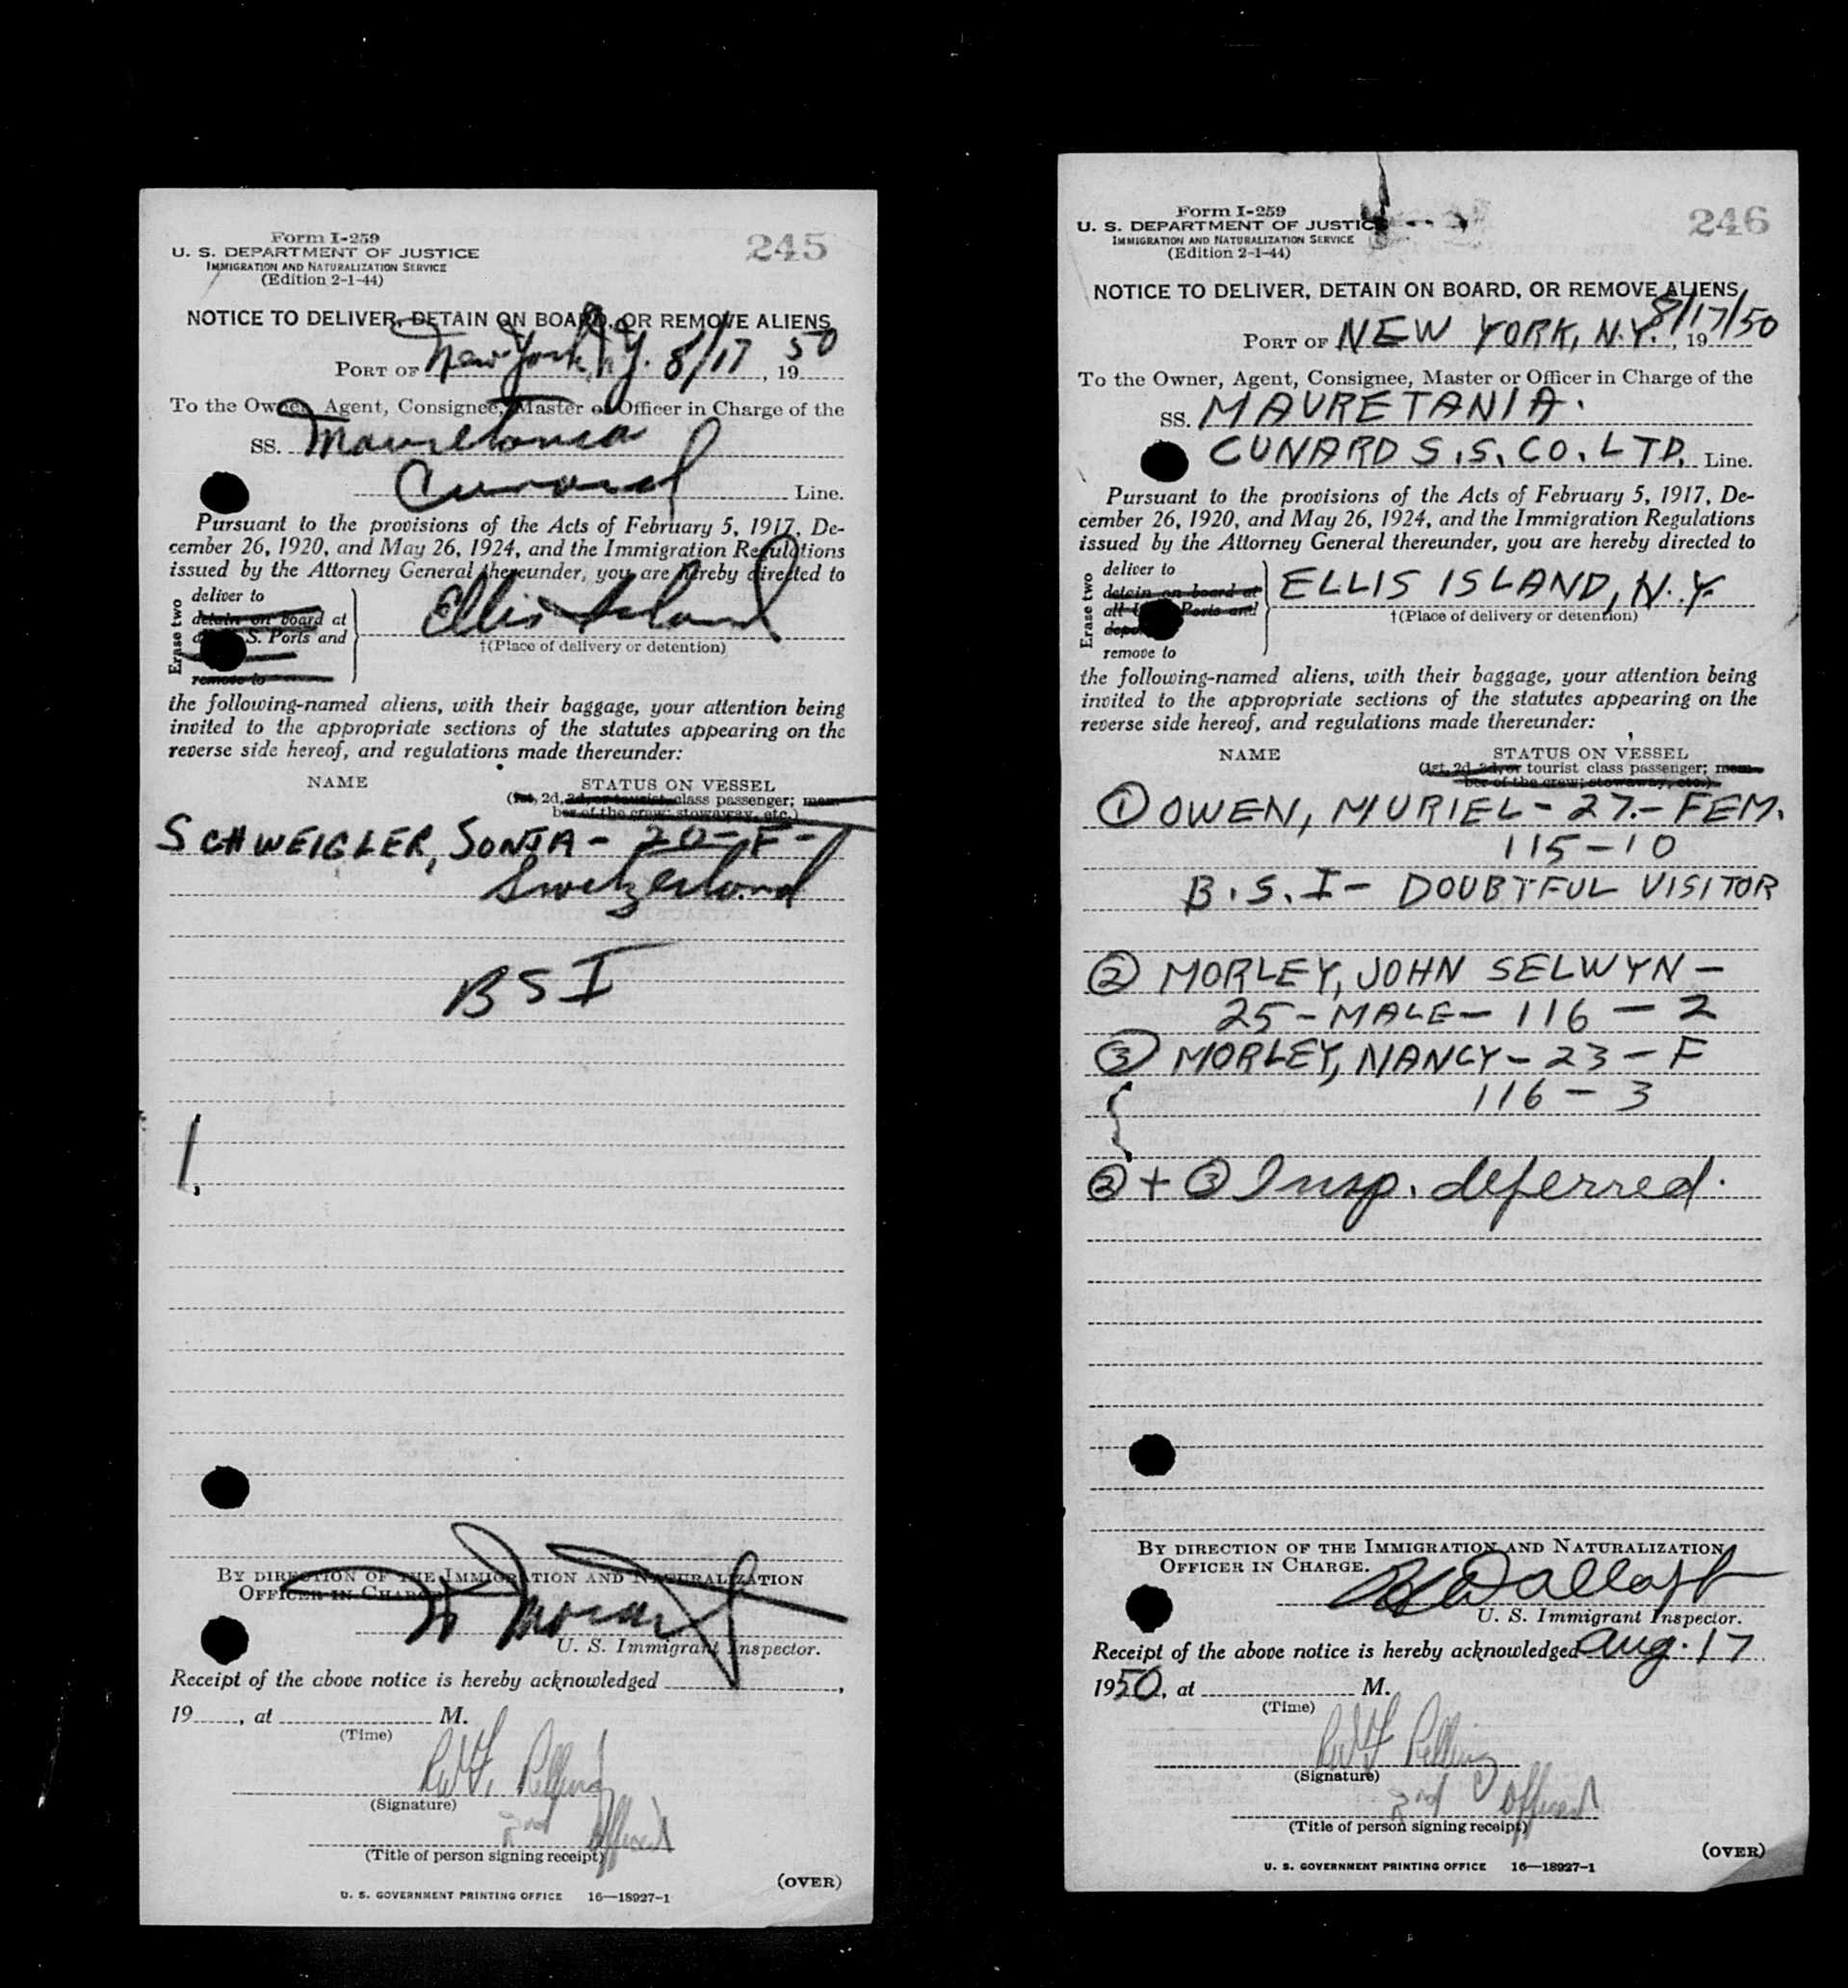 Form I-259
U. S. DEPARTMENT OF JUSTICE
IMMIGRATION AND NATURALIZATION SERVICE
(Edition 2-1-44)
245
NOTICE TO DELIVER, DETAIN ON BOARD, OR REMOVE ALIENS
PORT OF New York, N.Y. 8/17, 1950
To the Owner, Agent, Consignee, Master or Officer in Charge of the
SS. Mauretania
Cunard Line.
Pursuant to the provisions of the Acts of February 5, 1917, De-
cember 26, 1920, and May 26, 1924, and the Immigration Regulations
issued by the Attorney General thereunder, you are hereby directed to
Erase two
deliver to
detain on board at
S. Ports and
remove to
Ellis Island
†(Place of delivery or detention)
the following-named aliens, with their baggage, your attention being
invited to the appropriate sections of the statutes appearing on the
reverse side hereof, and regulations made thereunder:
NAME STATUS ON VESSEL
(1st, 2d, 3d, or tourist class passenger; mem-
ber of the crew; stowaway, etc.)
SCHWEIGLER, SONJA - 20 - F -
Switzerland
BSI
1,
BY DIRECTION OF THE IMMIGRATION AND NATURALIZATION
OFFICER IN CHARGE.
U. S. Immigrant Inspector.
Receipt of the above notice is hereby acknowledged
19, at M.
(Time)
(Signature)
2nd Officer
(Title of person signing receipt)
(OVER)
U. S. GOVERNMENT PRINTING OFFICE 16—18927-1
Form I-259
U. S. DEPARTMENT OF JUSTICE
IMMIGRATION AND NATURALIZATION SERVICE
(Edition 2-1-44)
246
NOTICE TO DELIVER, DETAIN ON BOARD, OR REMOVE ALIENS
PORT OF NEW YORK, N.Y., 19 8/17/50
To the Owner, Agent, Consignee, Master or Officer in Charge of the
SS. MAURETANIA.
CUNARD S.S. CO. LTD. Line.
Pursuant to the provisions of the Acts of February 5, 1917, De-
cember 26, 1920, and May 26, 1924, and the Immigration Regulations
issued by the Attorney General thereunder, you are hereby directed to
Erase two
deliver to
detain on board at
all Ports and
remove to
ELLIS ISLAND, N.Y.
†(Place of delivery or detention)
the following-named aliens, with their baggage, your attention being
invited to the appropriate sections of the statutes appearing on the
reverse side hereof, and regulations made thereunder:
NAME STATUS ON VESSEL
(1st, 2d, 3d, or tourist class passenger; mem-
ber of the crew; stowaway, etc.)
① OWEN, MURIEL - 27. - FEM.
115-10
B.S.I - DOUBTFUL VISITOR
② MORLEY, JOHN SELWYN -
25 - MALE - 116 - 2
③ MORLEY, NANCY - 23 - F
116 - 3
② + ③ Insp. deferred.
BY DIRECTION OF THE IMMIGRATION AND NATURALIZATION
OFFICER IN CHARGE.
U. S. Immigrant Inspector.
Receipt of the above notice is hereby acknowledged Aug. 17
1950, at M.
(Time)
(Signature)
2nd Officer
(Title of person signing receipt)
(OVER)
U. S. GOVERNMENT PRINTING OFFICE 16—18927-1